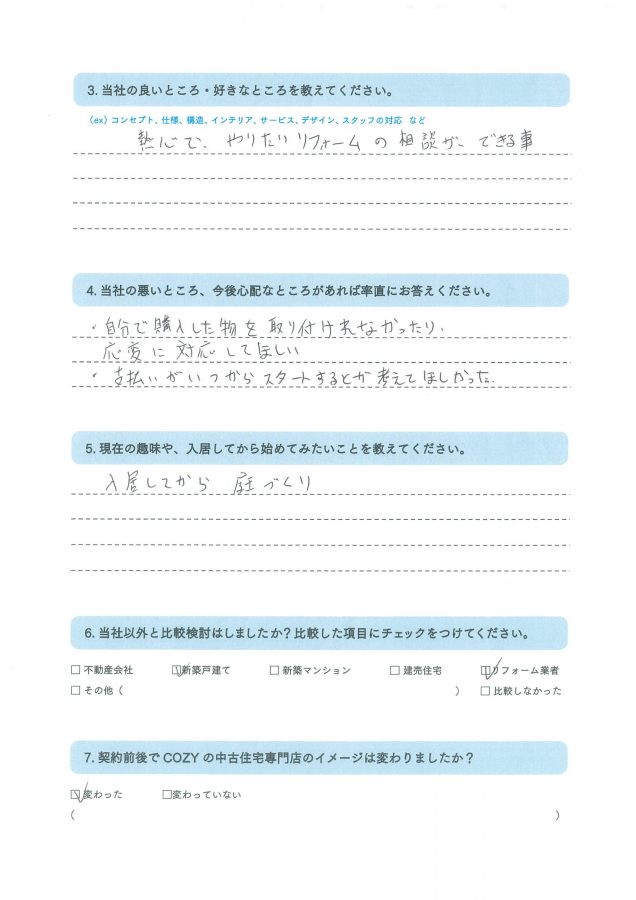 3. 当社の良いところ・好きなところを教えてください。
（ex）コンセプト、仕様、構造、インテリア、サービス、デザイン、スタッフの対応 など
熱心で、やりたいリフォームの相談が、できる事
4. 当社の悪いところ、今後心配なところがあれば率直にお答えください。
・自分で購入した物を取り付けれなかったり、
応変に対応してほしい
・支払いがいつからスタートするとか考えてほしかった。
5. 現在の趣味や、入居してから始めてみたいことを教えてください。
入居してから 庭づくり
6. 当社以外と比較検討はしましたか？比較した項目にチェックをつけてください。
□ 不動産会社 ☑新築戸建て □ 新築マンション □ 建売住宅 ☑リフォーム業者
□ その他（ ） □ 比較しなかった
7. 契約前後で COZY の中古住宅専門店のイメージは変わりましたか？
☑変わった □変わっていない
（ ）